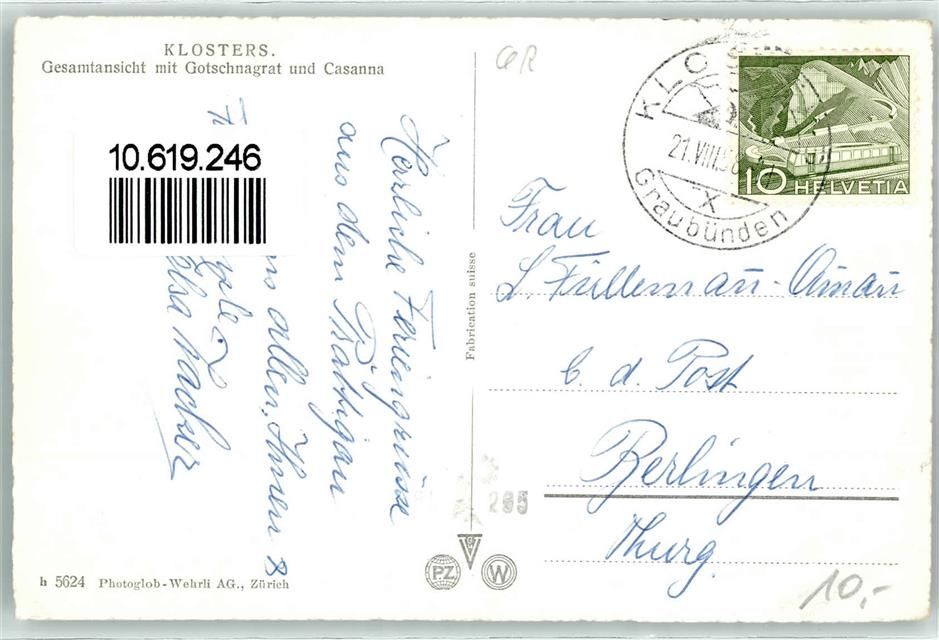 KLOSTERS.
Gesamtansicht mit Gotschnagrat und Casanna
10.619.246
Herzliche Feriengrüsse
aus dem Prättigau
allen. Ihnen
h 5624 Photoglob-Wehrli AG., Zürich
Fabrication suisse
295
PZ
W
GR
KLOS
21.VIII.5
X
Graubünden
10 HELVETIA
Frau
L. Füllemann-Amann
b. d. Post
Berlingen
Thurg.
10,-